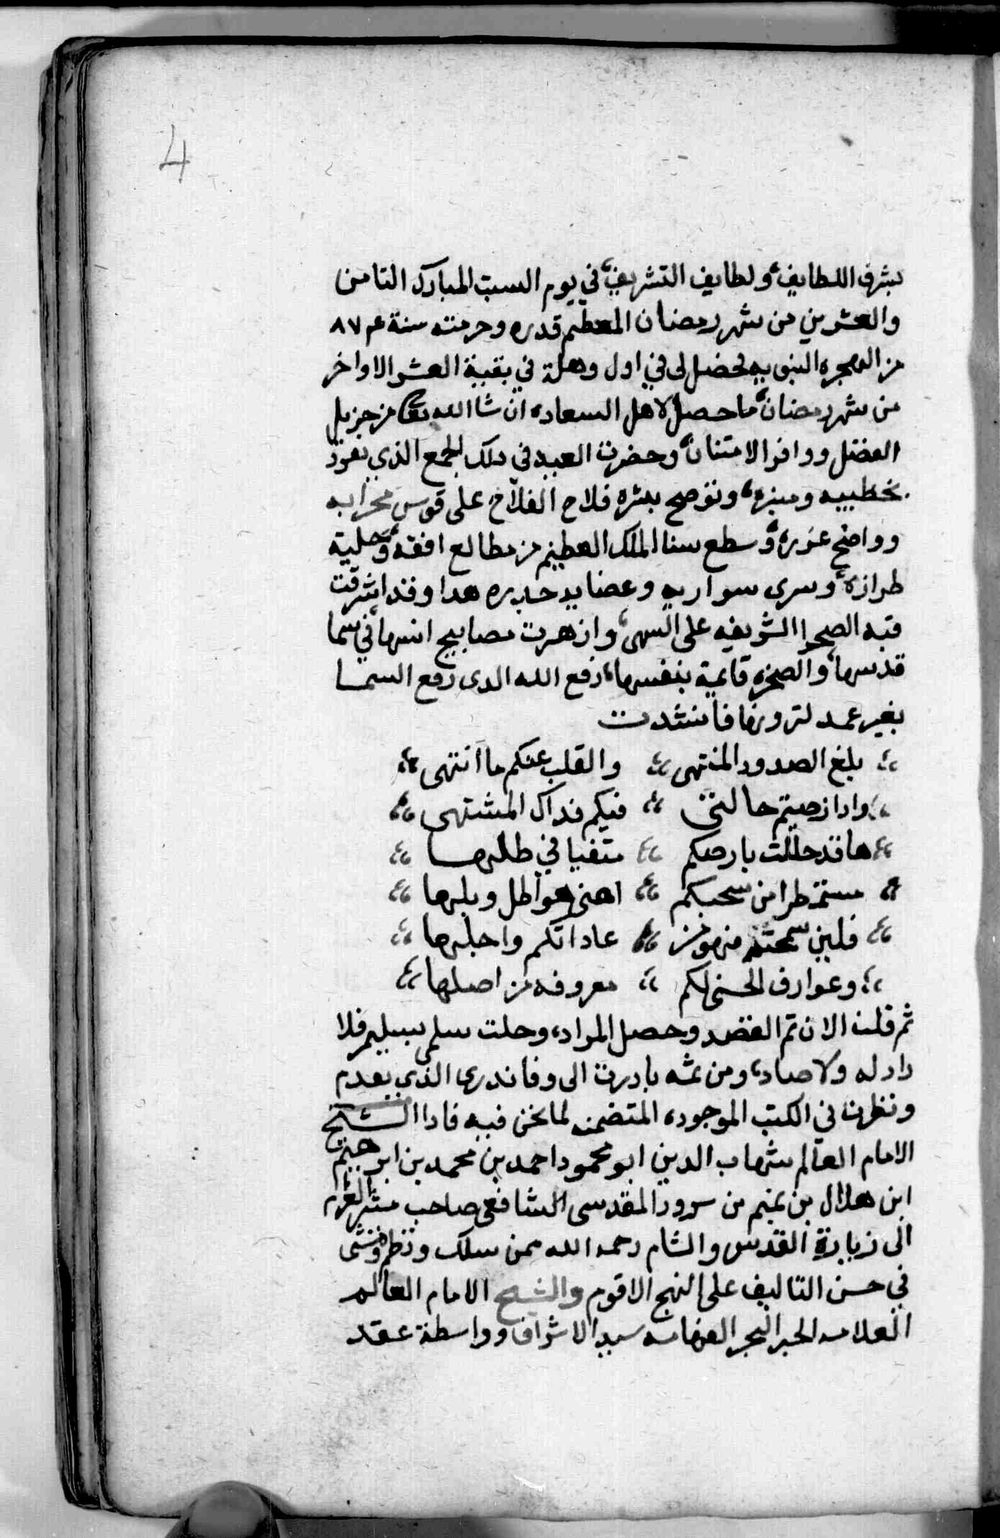 4
بشرف اللطايف ولطايف التشريف في يوم السبت المبارك الثامن
والعشرين من شهر رمضان المعظم قدره وحرمته سنة ٨٧٤
من الهجره النبويه فحصل لى في اول وهلة في بقية العشر الاواخر
من شهر رمضان ما حصل لاهل السعاده ان شا الله تعا من جزيل
الفضل ووافر الامتنان وحضرت العيد في ذلك الجمع الذي يفوز
بخطيبه ومنبره وتوضح بعثره فلاح الفلاح على قوس محرابه
وواضح غرره وسطع سنا الملك العظيم من مطالع افقه وحلية
طرازه وسرى سواريه وعصايد جدره هدا وقد اشرقت
قبه الصخرا الشريفه على السهى وازهرت مصابيح انسها في سما
قدسها والصخره قايمة بنفسها رفع الله الدى رفع السما
بغير عمد ترونها فانشدت
بلغ الصدور المنتهى والقلب عنكم ما انتهى
وادا رضيتم حالتى فيكم فداك المشتهى
ها قد حللت بارضكم متفيا في ظلها
مستمطرا من سحبكم اهنى هواطل وبلها
فلين سمحتم فهو من عاداتكم واجلها
وعوارف الحسنى لكم معروفه من اصلها
ثم قلت الان تم القصد وحصل المراد وحلت سلمى بسليم فلا
دادله ولا صاد ومن ثمه بادرت الى وفا نذرى الذي تقدم
ونظرت في الكتب الموجوده المتضمنه لما نحن فيه فادا الشيخ
الامام العالم شهاب الدين ابو محمود احمد بن محمد بن ابرهيم
ابن هلال بن تميم بن سرور المقدسى الشافعى صاحب مثير الغرام
الى زيارة القدس والشام رحمه الله ممن سلك ونظم ومشى
في حسن التاليف على النهج الاقوم والشيخ الامام العالم
العلامه الحبر البحر الفهامه سيد الاشراف وواسطة عقد